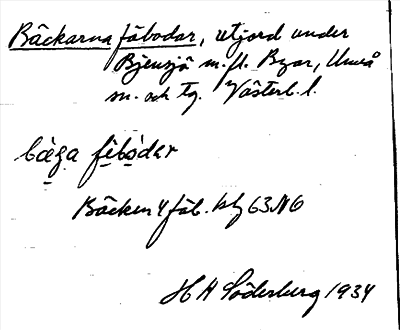 Bäckarna fäbodar, utjord under
Bjensjö m. fl. Byar, Umeå
sn. och tg. Västerb. l.
fèbòdar
Bäcken 4 fäb. blg 63 N6
H A Söderberg 1934